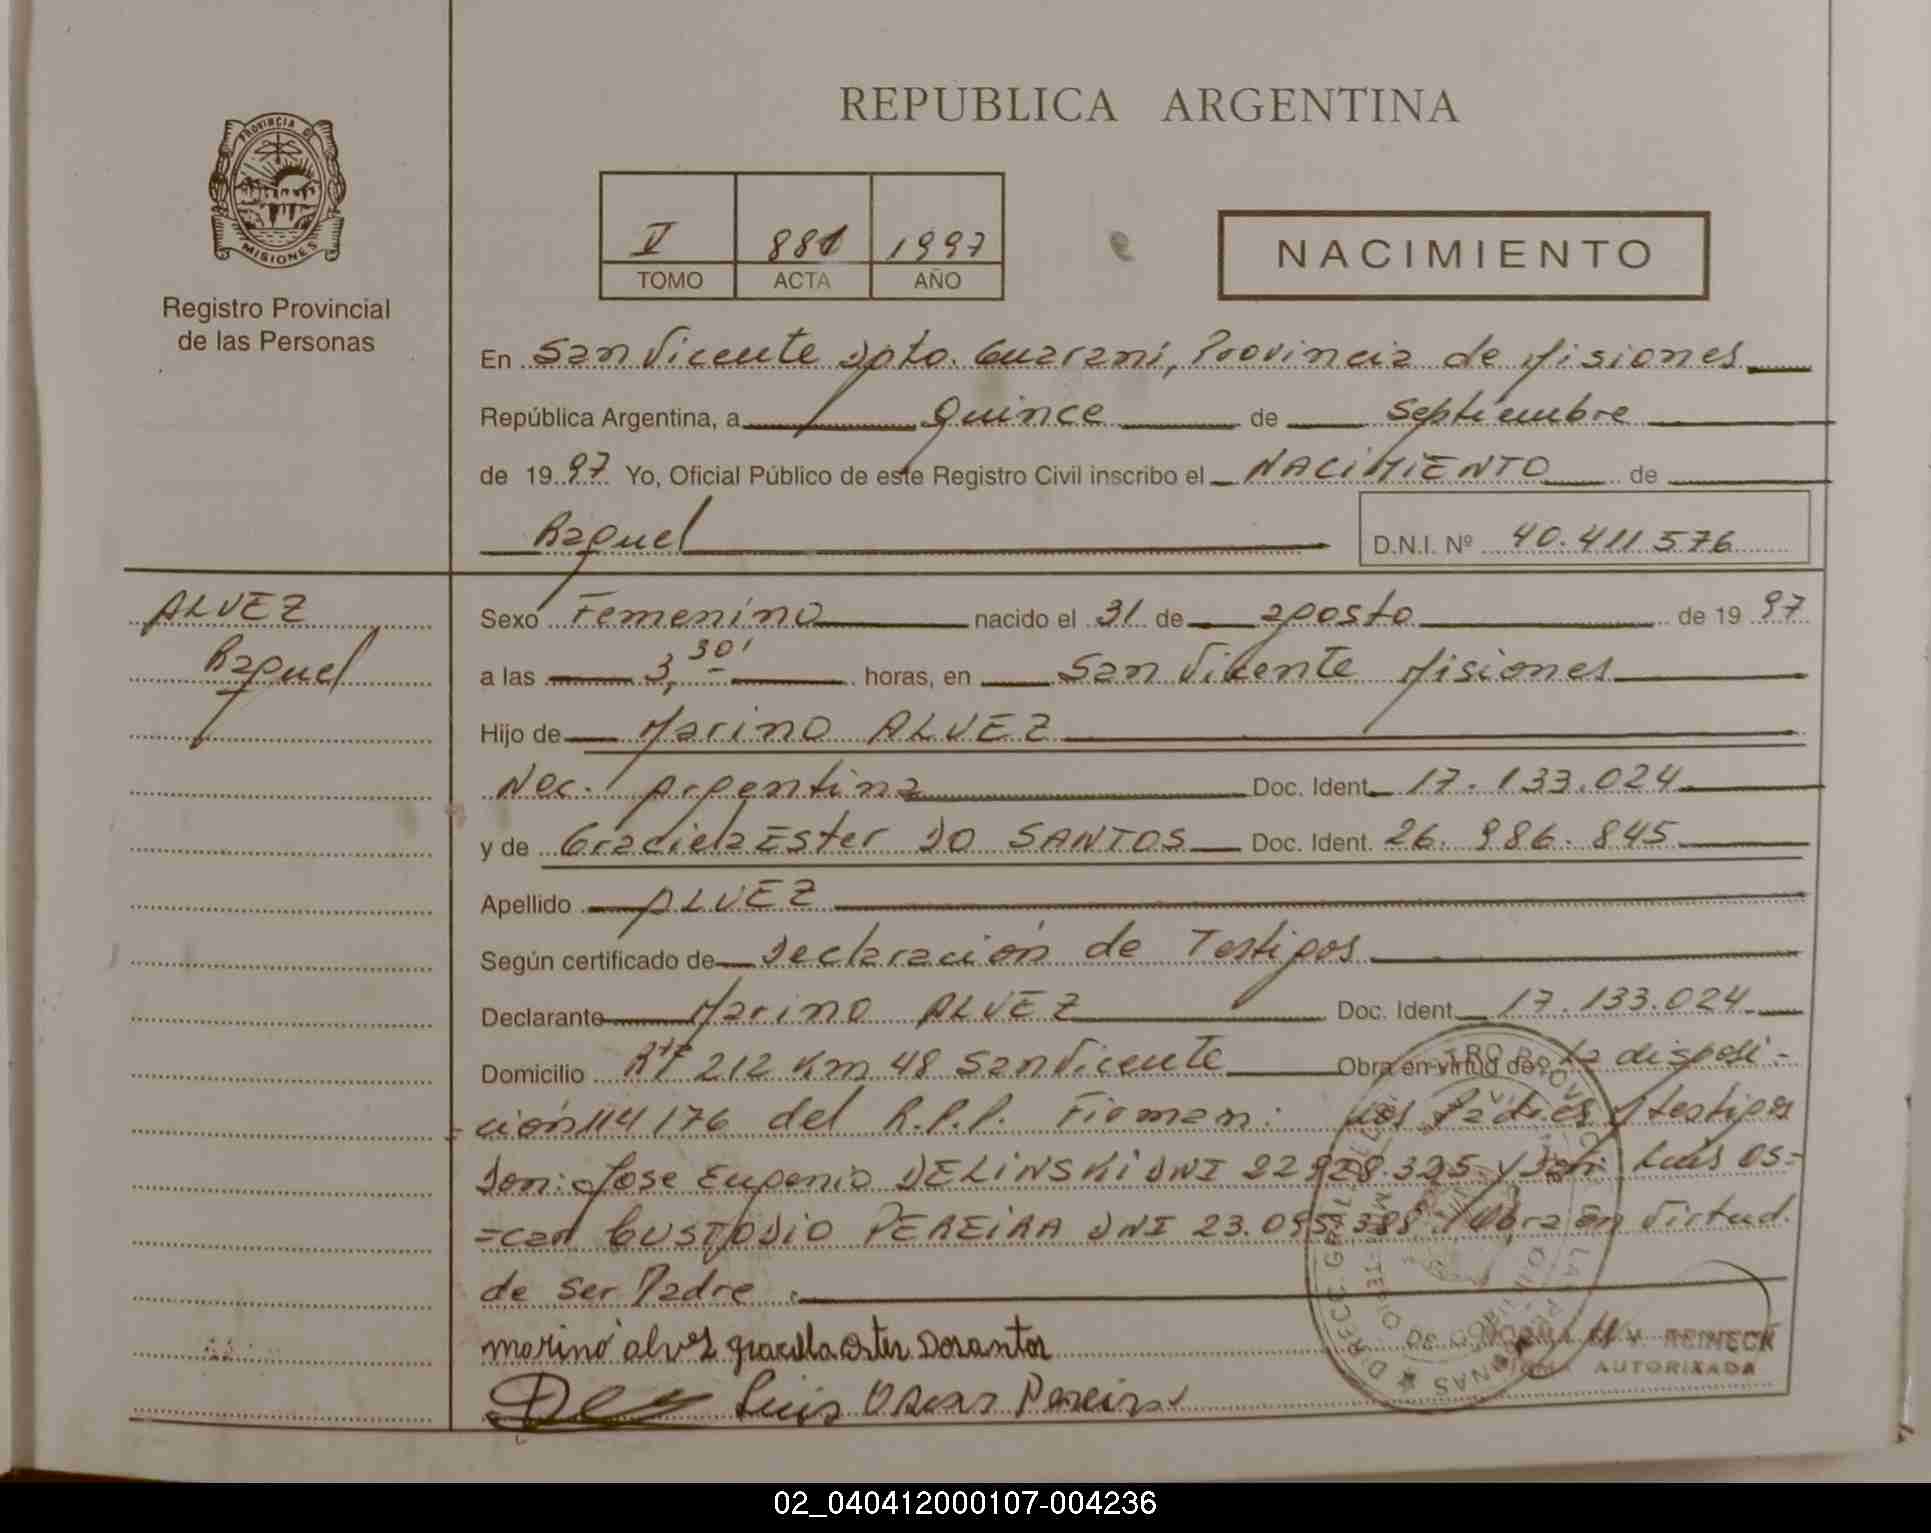 REPUBLICA ARGENTINA
PROVINCIA DE
MISIONES
Registro Provincial
de las Personas
V 881 1997
TOMO ACTA AÑO
NACIMIENTO
En San Vicente Dpto. Guaraní, Provincia de Misiones
República Argentina, a Quince de Septiembre
de 1997 Yo, Oficial Público de este Registro Civil inscribo el NACIMIENTO de
Raquel D.N.I. Nº 40.411.576
ALVEZ
Raquel
Sexo Femenino nacido el 31 de agosto de 1997
a las 3,30' horas, en San Vicente Misiones
Hijo de Marino ALVEZ
Nac. Argentina Doc. Ident. 17.133.024
y de Graciela Ester DO SANTOS Doc. Ident. 26.986.845
Apellido ALVEZ
Según certificado de Declaración de Testigos
Declarante Marino ALVEZ Doc. Ident. 17.133.024
Domicilio 212 Km 48 San Vicente Obra en virtud de La disposi-
=ción 114/76 del R.P.P. Firman: los Padres y testigos
Don: Jose Eugenio DELINSKI DNI 22.928.325 y Don: Luis Os-
=car CUSTODIO PEREIRA DNI 23.095.388. Obra en Virtud
de ser Padre.
marino alvez graciela ester Dosantos
Luis Oscar Pereira
NORMA V. REINECK
FIRMA AUTORIZADA
02_040412000107-004236